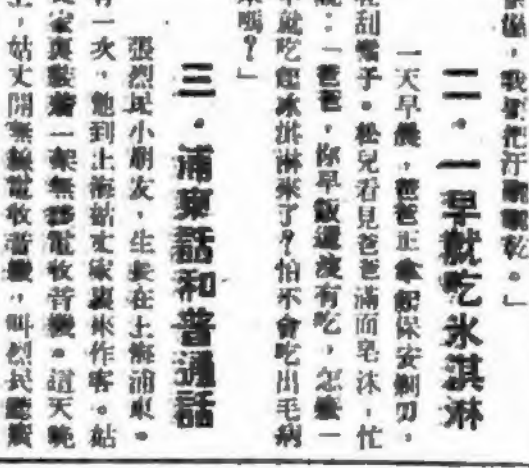 ，我要把汗曬曬乾。」
二・一早就吃氷淇淋
一天早晨，爸爸正拿保安剃刀，
在刮鬍子。松兒看見爸爸滿面皂沫，忙
說：「爸爸，你早飯還沒有吃，怎麼一
早就吃起冰淇淋來了？怕不會吃出毛病
來嗎？」
三・浦東話和普通話
張烈民小朋友，生長在上海浦東。
有一次，他到上海姑丈家裏來作客。姑
丈家裏裝着一架無線電收音機。這天晚
上，姑丈開無線電收音機，叫烈民聽廣